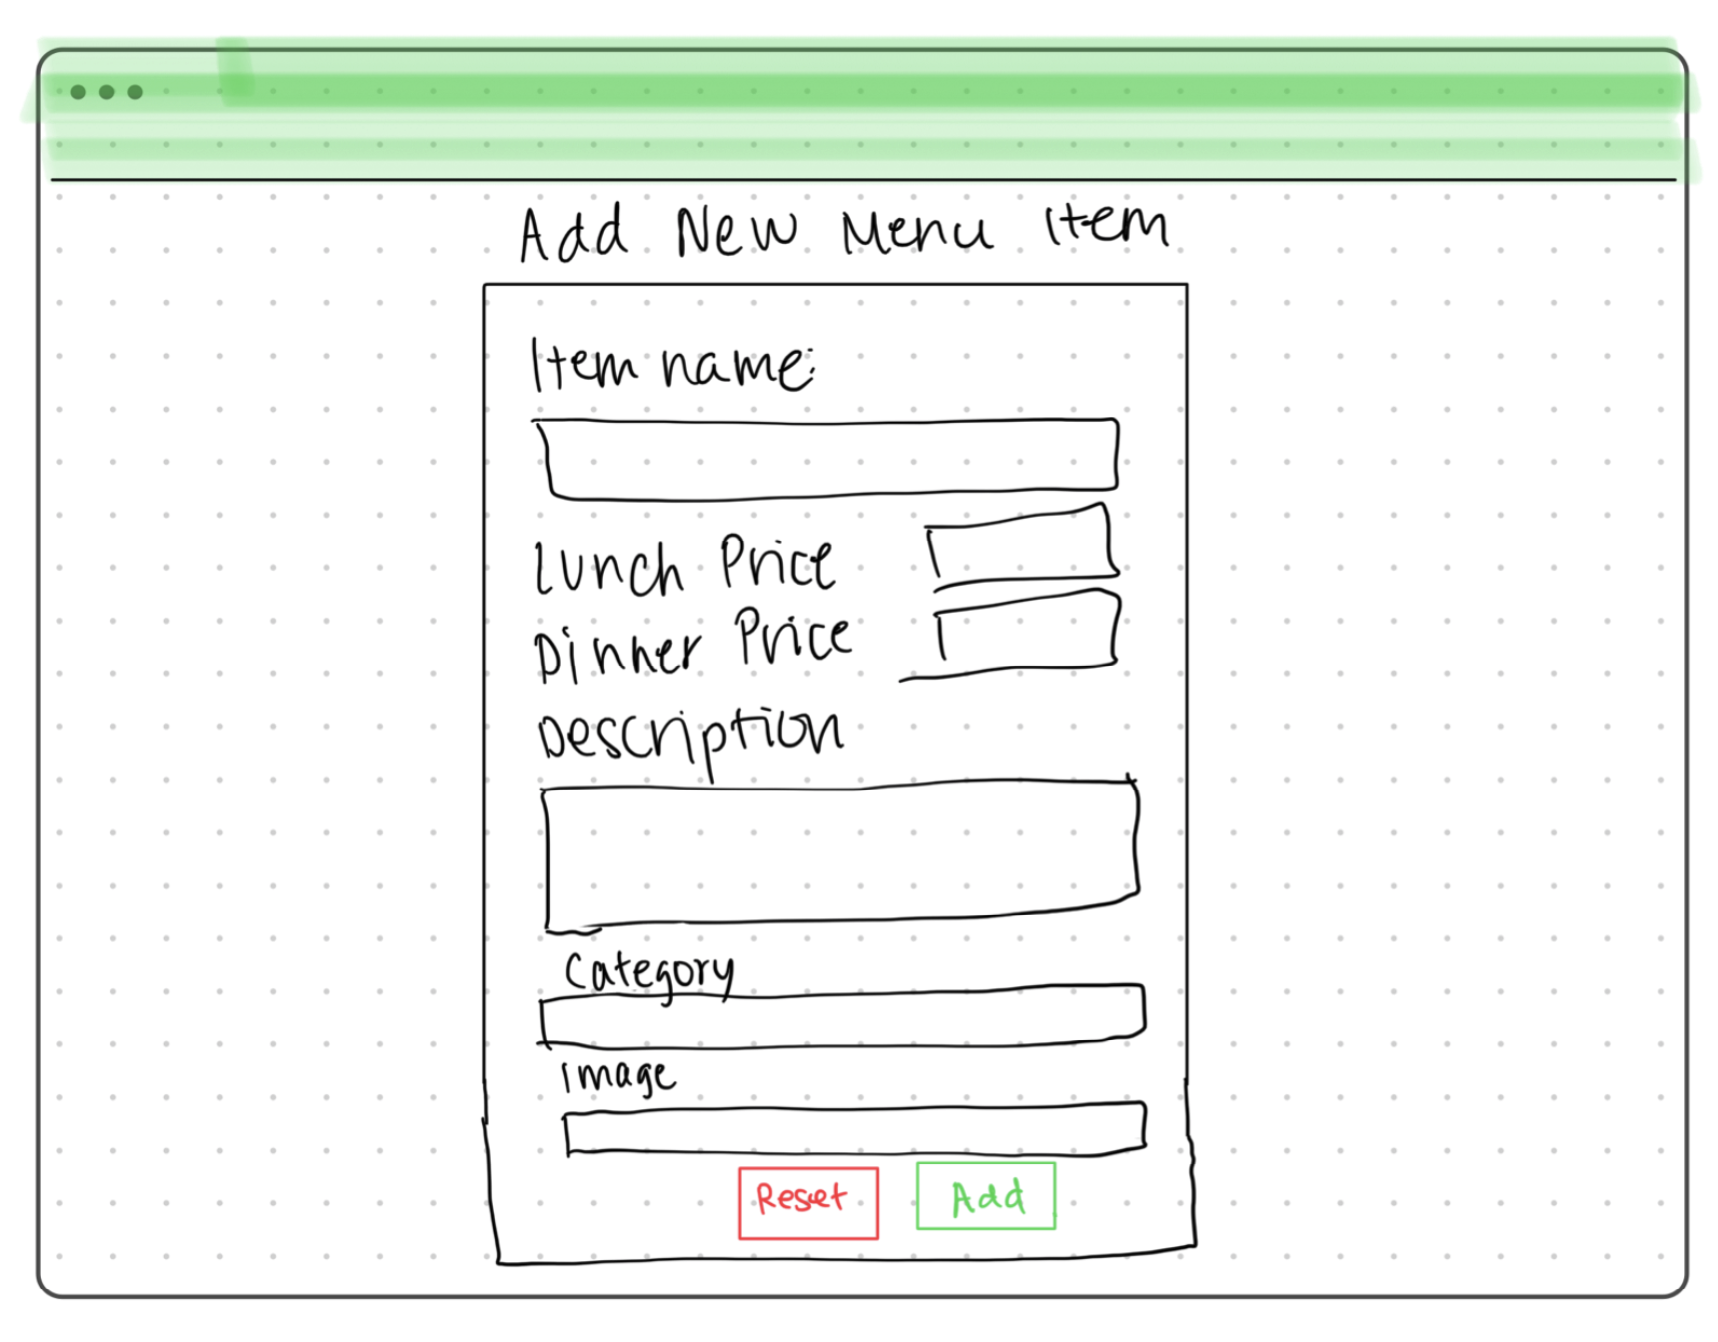 Add New Menu Item
Item name:
Lunch Price
Dinner Price
Description
Category
Image
Reset Add